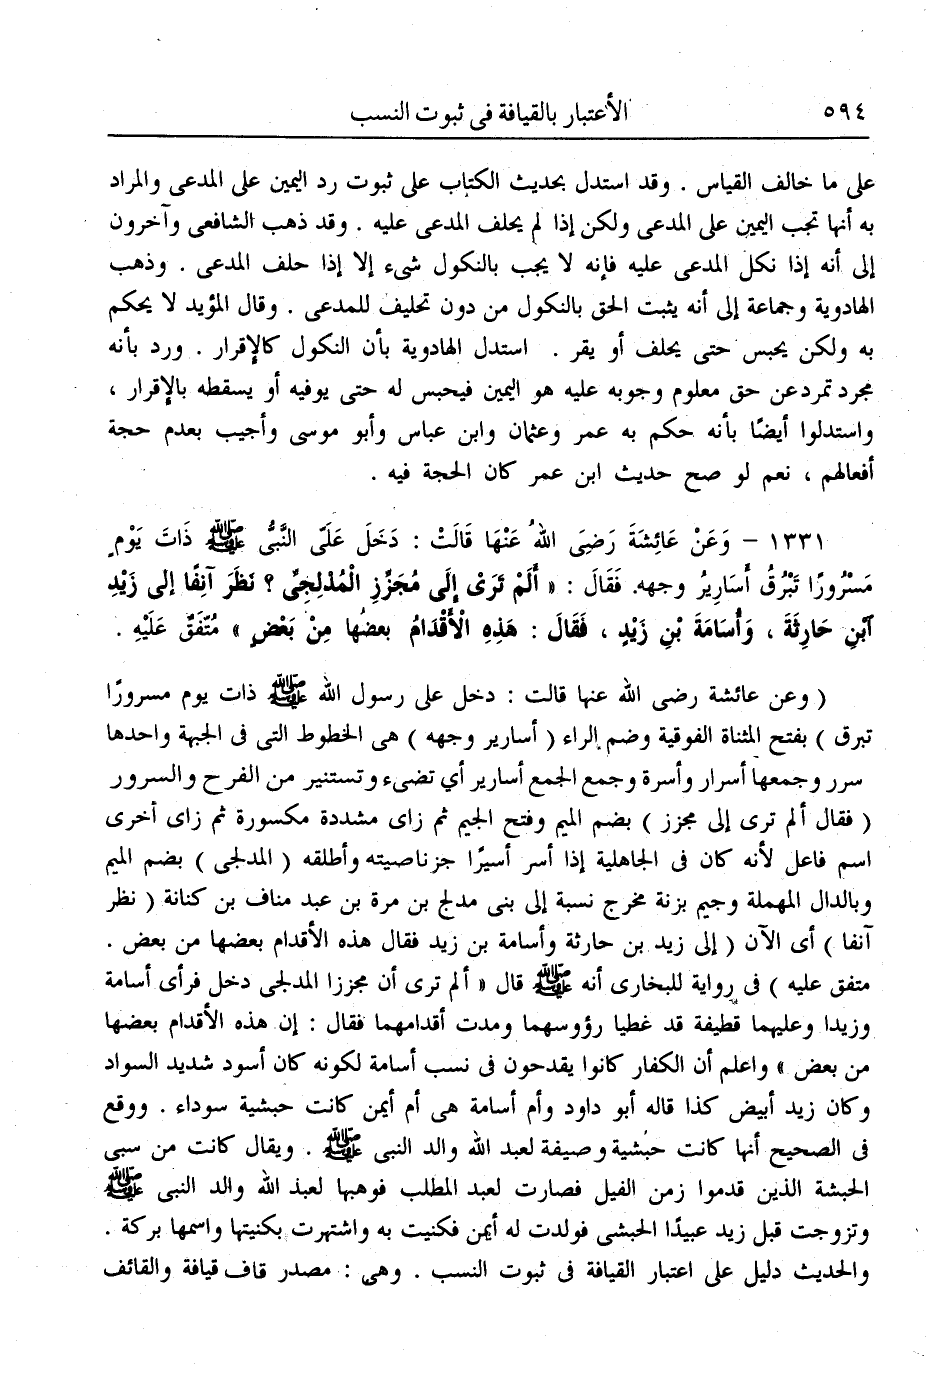 ٥٩٤ الأعتبار بالقيافة فى ثبوت النسب
على ما خالف القياس . وقد استدل بحديث الكتاب على ثبوت رد اليمين على المدعى والمراد
به أنها تجب اليمين على المدعى ولكن إذا لم يحلف المدعى عليه . وقد ذهب الشافعى وآخرون
إلى أنه إذا نكل المدعى عليه فإنه لا يجب بالنكول شىء إلا إذا حلف المدعى . وذهب
الهادوية وجماعة إلى أنه يثبت الحق بالنكول من دون تحليف للمدعى . وقال المؤيد لا يحكم
به ولكن يحبس حتى يحلف أو يقر . استدل الهادوية بأن النكول كالإقرار . ورد بأنه
مجرد تمرد عن حق معلوم وجوبه عليه هو اليمين فيحبس له حتى يوفيه أو يسقطه بالإقرار ،
واستدلوا أيضًا بأنه حكم به عمر وعثمان وابن عباس وأبو موسى وأجيب بعدم حجة
أفعالهم ، نعم لو صح حديث ابن عمر كان الحجة فيه .
١٣٣١ – وَعَنْ عَائِشَةَ رَضِىَ اللهُ عَنْهَا قَالَتْ : دَخَلَ عَلَىّ النَّبىُّ ﷺ ذَاتَ يَوْمٍ
مَسْرُورًا تَبْرُقُ أَسَارِيرُ وجهه. فَقَالَ : « أَلَمْ تَرَىْ إِلَى مُجَزِّزٍ الْمُدْلِجِىِّ ؟ نَظَرَ آنِفًا إلى زَيْدِ
آبْنِ حَارِثَةَ ، وَأُسَامَةَ بْنِ زَيْدٍ ، فَقَالَ : هَذِهِ الْأَقْدَامُ بعضُها مِنْ بَعْضٍ » مُتّفَقٌ عَلَيْهِ .
( وعن عائشة رضى الله عنها قالت : دخل على رسول الله ﷺ ذات يوم مسرورًا
تبرق ) بفتح المثناة الفوقية وضم الراء ( أسارير وجهه ) هى الخطوط التى فى الجبهة واحدها
سرر وجمعها أسرار وأسرة وجمع الجمع أسارير أي تضىء وتستنير من الفرح والسرور
( فقال ألم ترى إلى مجزز ) بضم الميم وفتح الجيم ثم زاى مشددة مكسورة ثم زاى أخرى
اسم فاعل لأنه كان فى الجاهلية إذا أسر أسيرًا جز ناصيته وأطلقه ( المدلجى ) بضم الميم
وبالدال المهملة وجيم بزنة مخرج نسبة إلى بنى مدلج بن مرة بن عبد مناف بن كنانة ( نظر
آنفا ) أى الآن ( إلى زيد بن حارثة وأسامة بن زيد فقال هذه الأقدام بعضها من بعض .
متفق عليه ) فى رواية للبخارى أنه ﷺ قال « ألم ترى أن مجززا المدلجى دخل فرأى أسامة
وزيدا وعليهما قطيفة قد غطيا رؤوسهما ومدت أقدامهما فقال : إن هذه الأقدام بعضها
من بعض » واعلم أن الكفار كانوا يقدحون فى نسب أسامة لكونه كان أسود شديد السواد
وكان زيد أبيض كذا قاله أبو داود وأم أسامة هى أم أيمن كانت حبشية سوداء . ووقع
فى الصحيح أنها كانت حبشية وصيفة لعبد الله والد النبى ﷺ . ويقال كانت من سبى
الحبشة الذين قدموا زمن الفيل فصارت لعبد المطلب فوهبها لعبد الله والد النبى ﷺ
وتزوجت قبل زيد عبيدًا الحبشى فولدت له أيمن فكنيت به واشتهرت بكنيتها واسمها بركة .
والحديث دليل على اعتبار القيافة فى ثبوت النسب . وهى : مصدر قاف قيافة والقائف